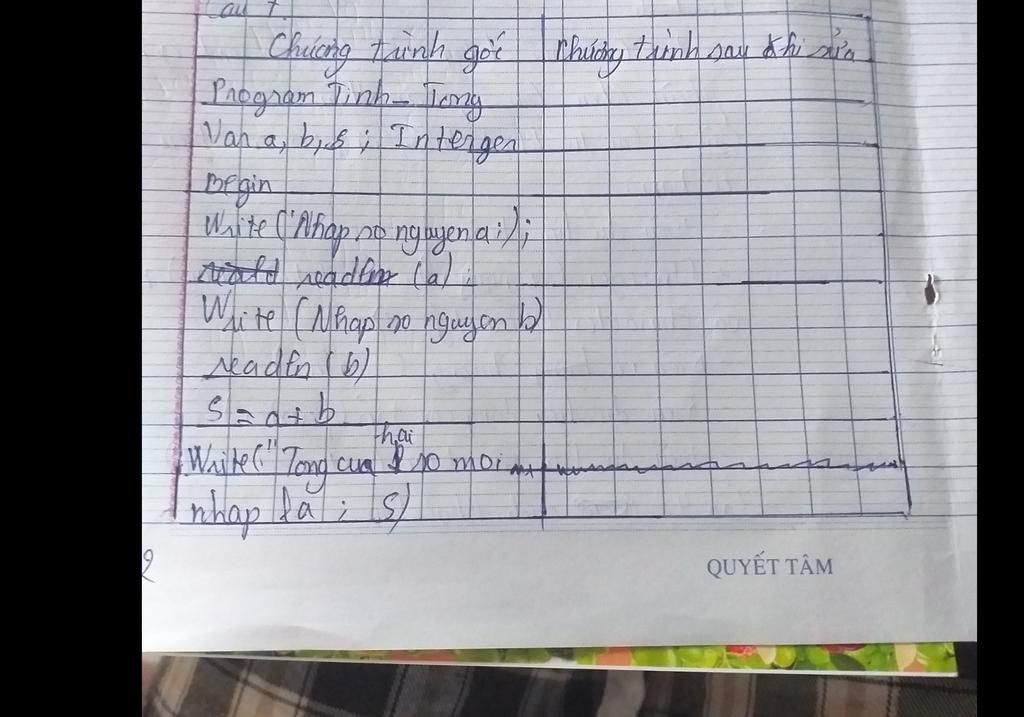 Câu 7.
Chương trình gốc
Chương trình sau khi sửa
Program Tinh_Tong
Var a, b, s ; Interger
Begin
Write ('Nhap so nguyen a:);
readln (a) ;
Write (Nhap so nguyen b)
readln (b)
S = a + b
Write (" Tong cua hai so moi
nhap la ; S)
2
QUYẾT TÂM